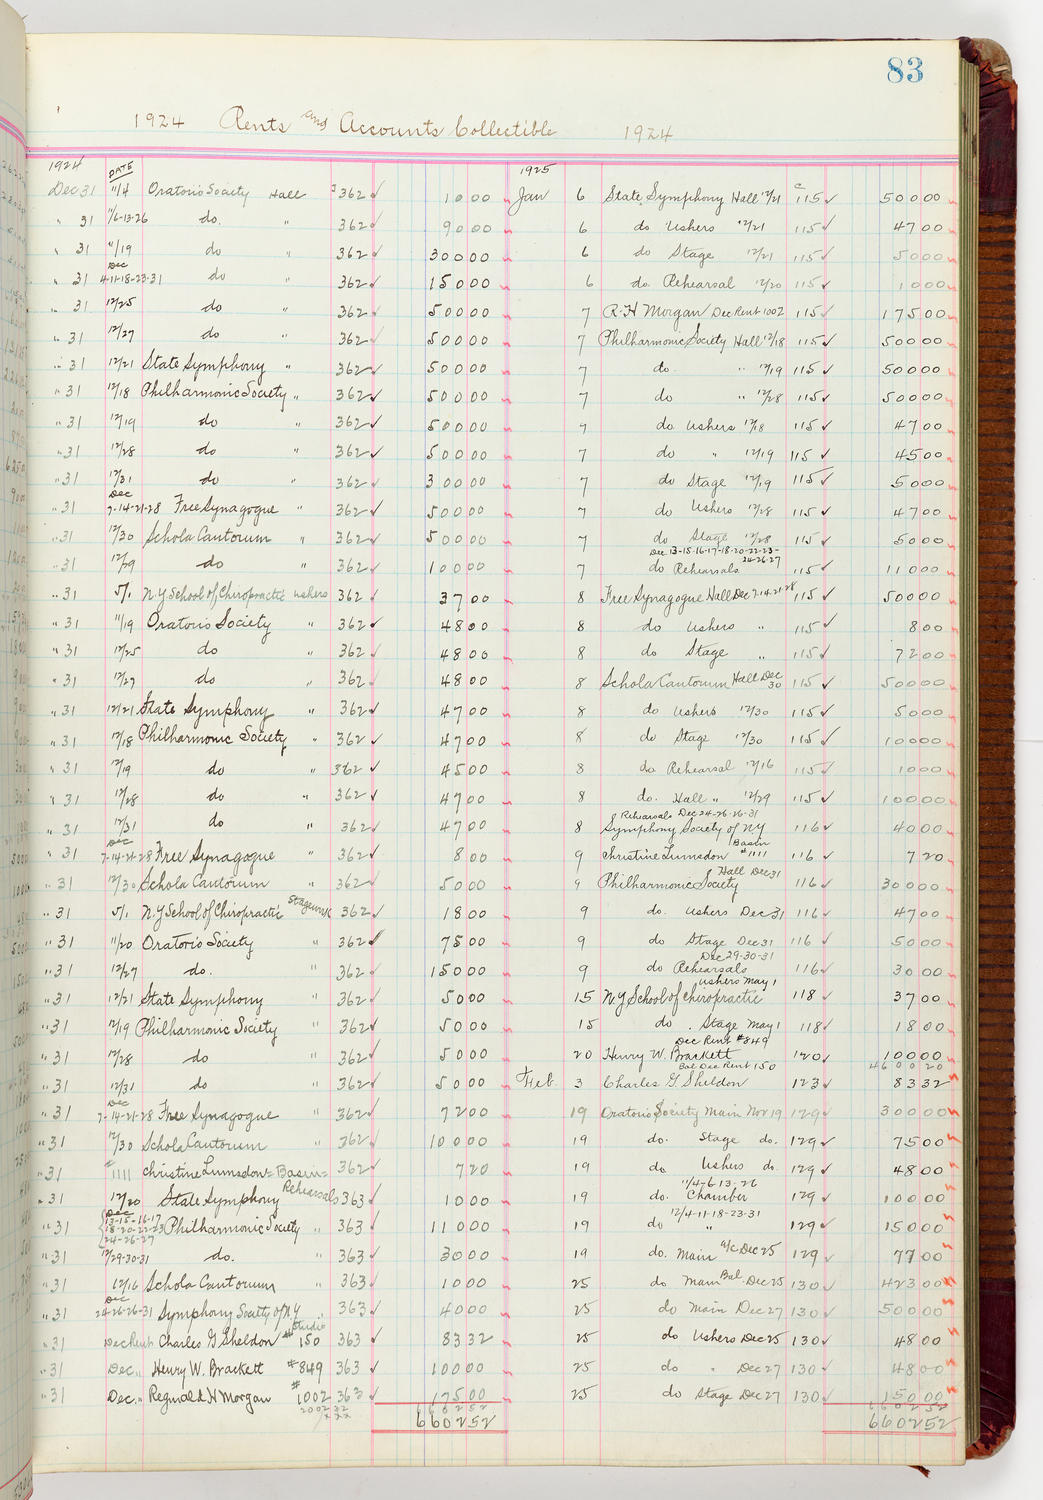 83
1924 Rents and Accounts Collectible 1924
1924 DATE
Dec 31 11/4 Oratorio Society Hall 362 ✓ 10 00
" 31 11/6-13-26 do. " 362 ✓ 90 00
" 31 11/19 do " 362 ✓ 300 00
" 31 Dec 4-11-18-23-31 do " 362 ✓ 150 00
" 31 12/25 do " 362 ✓ 500 00
" 31 12/27 do " 362 ✓ 500 00
" 31 12/21 State Symphony " 362 ✓ 500 00
" 31 12/18 Philharmonic Society " 362 ✓ 500 00
" 31 12/19 do " 362 ✓ 500 00
" 31 12/28 do " 362 ✓ 500 00
" 31 12/31 do " 362 ✓ 300 00
" 31 Dec 7-14-21-28 Free Synagogue " 362 ✓ 500 00
" 31 12/30 Schola Cantorum " 362 ✓ 500 00
" 31 12/29 do " 362 ✓ 100 00
" 31 5/1 N.Y School of Chiropractic ushers 362 ✓ 37 00
" 31 11/19 Oratorio Society " 362 ✓ 48 00
" 31 12/25 do " 362 ✓ 48 00
" 31 12/27 do " 362 ✓ 48 00
" 31 12/21 State Symphony " 362 ✓ 47 00
" 31 12/18 Philharmonic Society " 362 ✓ 47 00
" 31 12/19 do " 362 ✓ 45 00
" 31 12/28 do " 362 ✓ 47 00
" 31 12/31 do " 362 ✓ 47 00
" 31 Dec 7-14-21-28 Free Synagogue " 362 ✓ 8 00
" 31 12/30 Schola Cantorum " 362 ✓ 50 00
" 31 5/1 N.Y School of Chiropractic Stagework 362 ✓ 18 00
" 31 11/20 Oratorio Society " 362 ✓ 75 00
" 31 12/27 do. " 362 ✓ 150 00
" 31 12/21 State Symphony " 362 ✓ 50 00
" 31 12/19 Philharmonic Society " 362 ✓ 50 00
" 31 12/28 do " 362 ✓ 50 00
" 31 12/31 do " 362 ✓ 50 00
" 31 Dec 7-14-21-28 Free Synagogue " 362 ✓ 72 00
" 31 12/30 Schola Cantorum " 362 ✓ 100 00
" 31 #1111 Christine Lumsdon = Basin = 362 ✓ 7 20
" 31 12/20 State Symphony Rehearsals 363 ✓ 10 00
" 31 Dec 13-15-16-17 18-20-22-23 24-26-27 Philharmonic Society " 363 ✓ 110 00
" 31 12/29-30-31 do. " 363 ✓ 30 00
" 31 12/16 Schola Cantorum " 363 ✓ 10 00
" 31 Dec 24-26-26-31 Symphony Society of N.Y " 363 ✓ 40 00
" 31 Dec Rent Charles G Sheldon Studio #150 363 ✓ 83 32
" 31 Dec. " Henry W. Brackett #849 363 ✓ 100 00
" 31 Dec. " Reginald H Morgan #1002 363 ✓ 175 00
6602 52
6602 52
1925
Jan 6 State Symphony Hall 12/21 c 115 ✓ 500 00
6 do Ushers 12/21 115 ✓ 47 00
6 do Stage 12/21 115 ✓ 50 00
6 do Rehearsal 12/20 115 ✓ 10 00
7 R.H Morgan Dec Rent 1002 115 ✓ 175 00
7 Philharmonic Society Hall 12/18 115 ✓ 500 00
7 do " 12/19 115 ✓ 500 00
7 do " 12/28 115 ✓ 500 00
7 do Ushers 12/18 115 ✓ 47 00
7 do " 12/19 115 ✓ 45 00
7 do Stage 12/19 115 ✓ 50 00
7 do Ushers 12/28 115 ✓ 47 00
7 do Stage 12/28 115 ✓ 50 00
Dec 13-15-16-17-18-20-22-23- 24-26-27
7 do Rehearsals 115 ✓ 110 00
8 Free Synagogue Hall Dec 7-14-21-28 115 ✓ 500 00
8 do Ushers " 115 ✓ 8 00
8 do Stage " 115 ✓ 72 00
8 Schola Cantorum Hall Dec 30 115 ✓ 500 00
8 do Ushers 12/30 115 ✓ 50 00
8 do Stage 12/30 115 ✓ 100 00
8 do Rehearsal 12/16 115 ✓ 10 00
8 do. Hall " 12/29 115 ✓ 100 00
Rehearsals Dec 24-26-26-31
8 Symphony Society of N.Y 116 ✓ 40 00
9 Christine Lumsdon Basin #1111 116 ✓ 7 20
9 Philharmonic Society Hall Dec 31 116 ✓ 300 00
9 do. Ushers Dec 31 116 ✓ 47 00
9 do Stage Dec 31 116 ✓ 50 00
Dec 29-30-31
9 do Rehearsals 116 ✓ 30 00
15 N.Y School of Chiropractic ushers May 1 118 ✓ 37 00
15 do . Stage May 1 118 ✓ 18 00
20 Henry W. Brackett Dec Rent #849 120 ✓ 100 00
4600 20
Feb. 3 Charles G. Sheldon Bal Dec Rent 150 123 ✓ 83 32
19 Oratorio Society Main Nov 19 129 ✓ 300 00
19 do. Stage do. 129 ✓ 75 00
19 do Ushers do. 129 ✓ 48 00
11/4-6-13-26
19 do. Chamber 129 ✓ 100 00
12/4-11-18-23-31
19 do " 129 ✓ 150 00
19 do. Main a/c Dec 25 129 ✓ 77 00
25 do Main Bal. Dec 25 130 ✓ 423 00
25 do Main Dec 27 130 ✓ 500 00
25 do Ushers Dec 25 130 ✓ 48 00
25 do " Dec 27 130 ✓ 48 00
25 do Stage Dec 27 130 ✓ 150 00
6602 52
6602 52